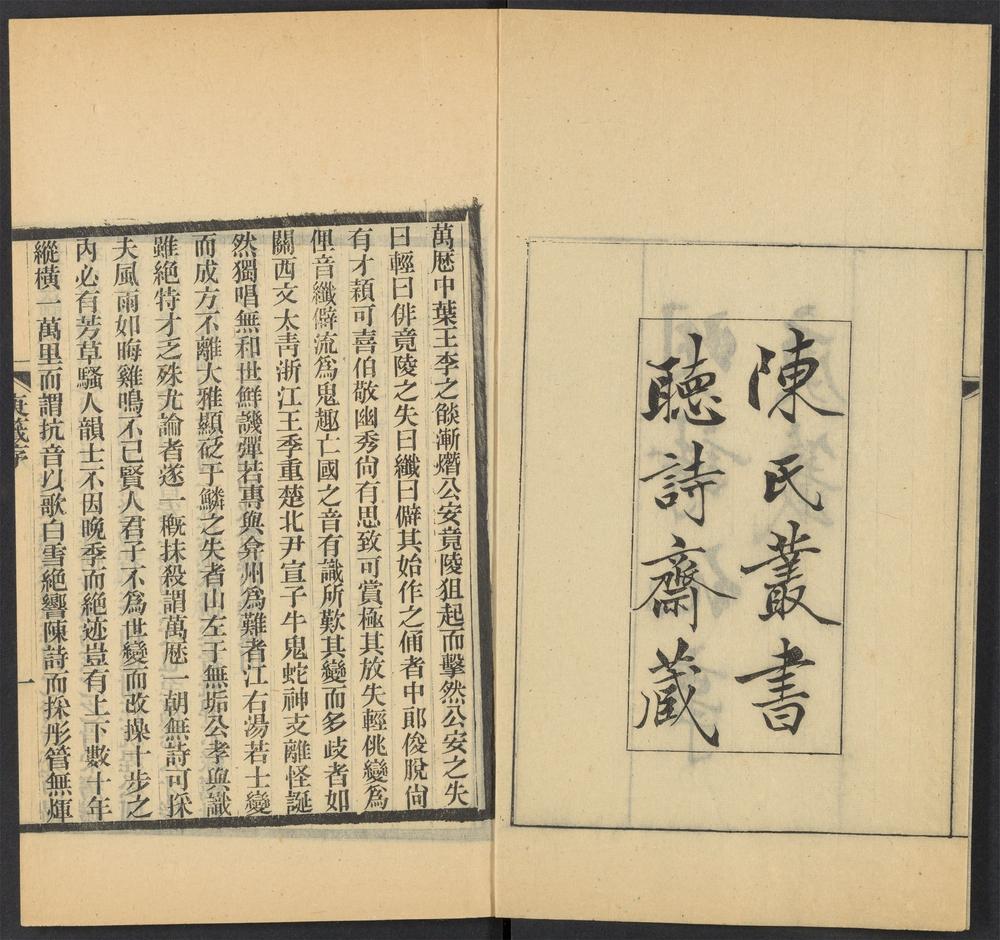 陳氏叢書
聽詩齋蔵
萬厯中葉王李之燄漸熸公安竟陵狙起而擊然公安之失
曰輕曰俳竟陵之失曰纖曰僻其始作之俑者中郎俊脫尙
有才穎可喜伯敬幽秀尙有思致可賞極其放失輕佻變為
俚音纖僻流為鬼趣亡國之音有識所歎其變而多歧者如
關西文太青浙江王季重楚北尹宣子牛鬼蛇神支離怪誕
然獨唱無和世鮮譏彈若專與弇州為難者江右湯若士變
而成方不離大雅顯砭于鱗之失者山左于無垢公孝與識
雖絕特才乏殊尤論者遂一槪抹殺謂萬厯一朝無詩可採
夫風雨如晦雞鳴不已賢人君子不為世變而改操十步之
內必有芳草騷人韻士不因晚季而絕迹豈有上下數十年
縱橫一萬里而謂抗音以歌白雪絕響陳詩而採彤管無煇
庚籤序
一